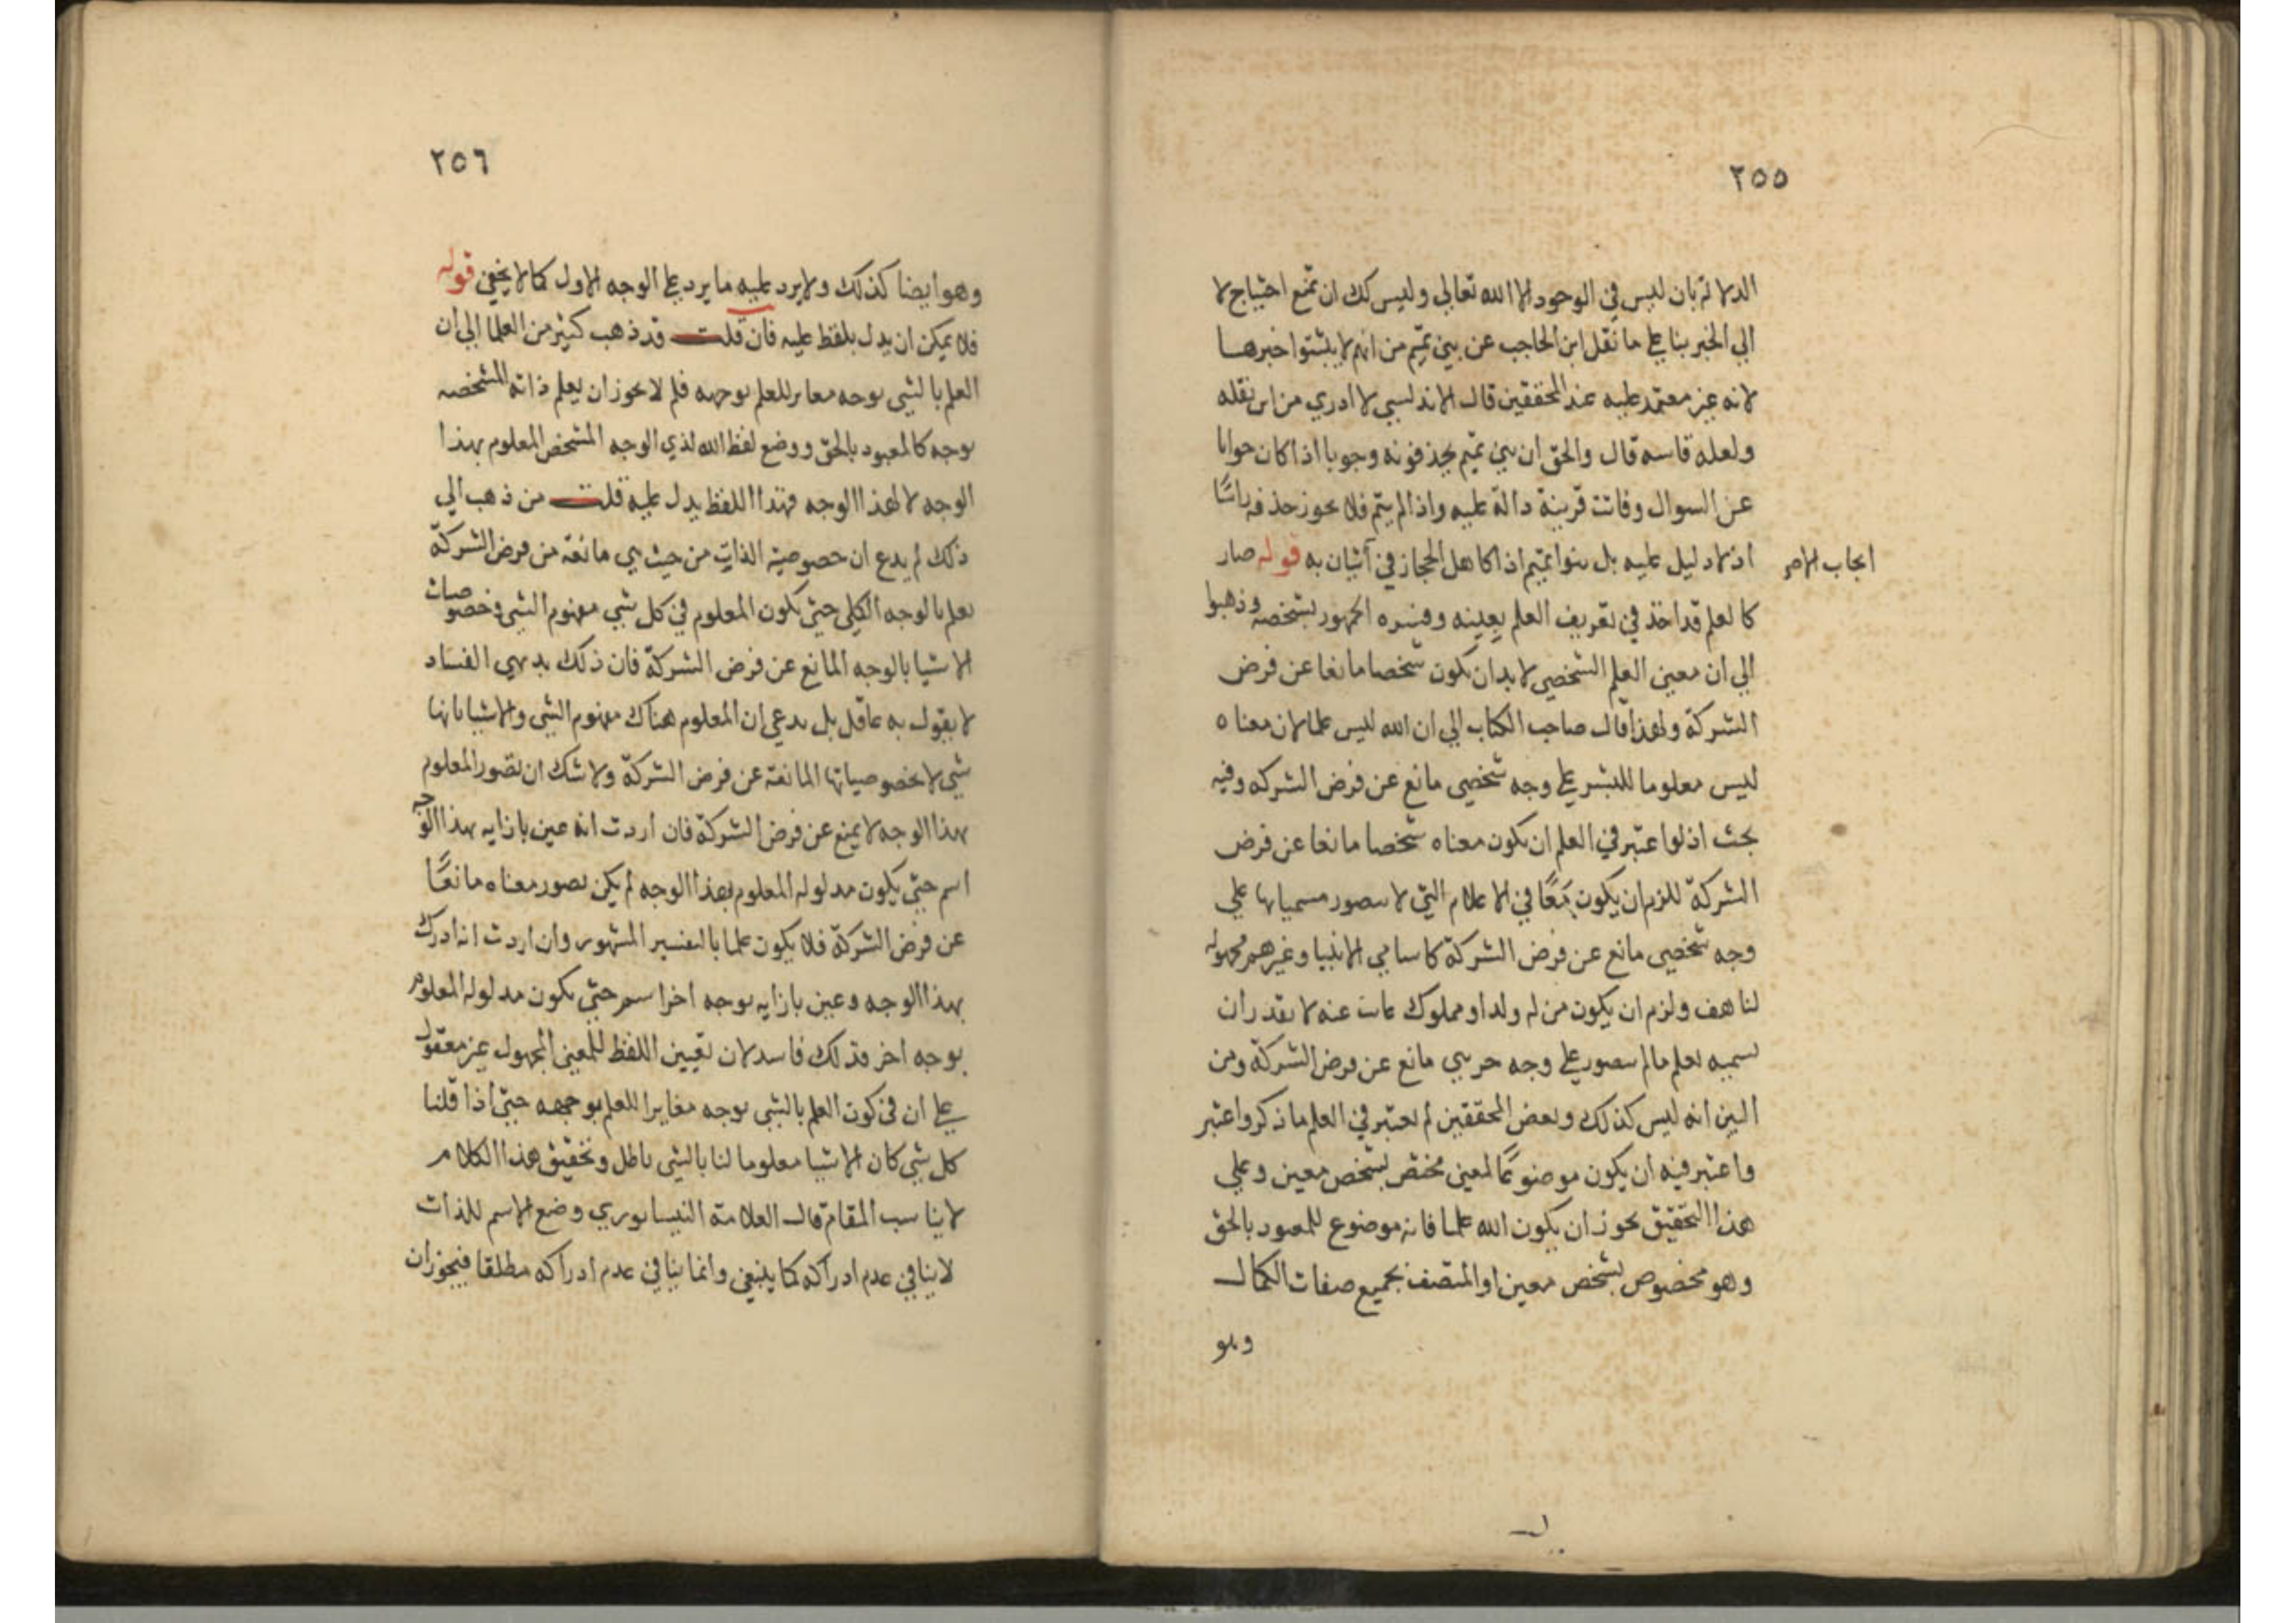 ٢٥٥
الدلالة بان ليس في الوجود الا الله تعالي وليس كك ان تمنع احتياج لا
الي الخبر بنا علي ما نقل ابن الحاجب عن بني تميم من انهم لا يثبتوا خبرهـا
لانه غير معتمد عليه عند المحققين قال الاندلسي لا ادري من اين نقله
ولعله قاسه قال والحق ان بني تميم يحذفونه وجوبا اذا كان جوابا
عن السوال وقامت قرينة دالة عليه واذا لم يتم فلا يجوز حذفه
اذ لا دليل عليه بل بنوا تميم اذا كاهل الحجاز في اتيان به قوله صار
ايجاب
كالعلم قد اخذ في تعريف العلم بعينه وفسره الجمهور بشخصه وذهبوا
الي ان معني العلم الشخصي لا بد ان يكون شخصا مانعا عن فرض
الشركة ولهذا قال صاحب الكتاب الي ان الله ليس علما لان معناه
ليس معلوما للبشر علي وجه شخصي مانع عن فرض الشركه وفيه
بحث اذ لو اعتبر في العلم ان يكون معناه شخصا مانعا عن فرض
الشركة للزم ان يكون في الاعلام التي لا يتصور مسمياتها علي
وجه شخصي مانع عن فرض الشركة كاسامي الانبيا وغيرهم مجهولة
لنا هف ولزم ان يكون من له ولد او مملوك غايب عنه لا يقدر ان
يسميه بعلم ما لم يتصور علي وجه جزيي مانع عن فرض الشركة ومن
البين انه ليس كذلك وبعض المحققين لم يعتبر في العلم ما ذكر واعتبر
واعتبر فيه ان يكون موضوعًا لمعني مختص بشخص معين وعلي
هذا التحقيق يجوز ان يكون الله علما فانه موضوع للمعبود بالحق
وهو مخصوص بشخص معين او المتصف بجميع صفات الكمال
وهو
٢٥٦
وهو ايضا كذلك ولا يرد عليه ما يرد علي الوجه الاول كما لا يخفي قوله
فلا يمكن ان يدل بلفظ عليه فان قلت قد ذهب كثير من العلما الي ان
العلم بالشي بوجه مغاير للعلم بوجهه فلم لا يجوز ان يعلم ذاته المشخصه
بوجه كالمعبود بالحق ووضع لفظ الله لذي الوجه المشخص المعلوم بهذا
الوجه لا لهذا الوجه فهذا اللفظ يدل عليه قلت من ذهب الي
ذلك لم يدع ان خصوصية الذات من حيث هي مانعة من فرض الشركة
يعلم بالوجه الكلي حتي يكون المعلوم في كل شي مفهوم الشي وخصوصيات
الاشيا بالوجه المانع عن فرض الشركة فان ذلك بديهي الفساد
لا يقول به عاقل بل يدعي ان المعلوم هناك مفهوم الشي والاشيا بانها
شي لا بخصوصياتها المانعة عن فرض الشركة ولا شك ان تصور المعلوم
بهذا الوجه لا يمنع عن فرض الشركة فان اردت انه عين بازايه بهذا الوجه
اسم حتي يكون مدلوله المعلوم بهذا الوجه لم يكن تصور معناه مانعًا
عن فرض الشركة فلا يكون علما بالتفسير المشهور وان اردت انه ادرك
بهذا الوجه وعين بازايه بوجه اخر اسم حتي يكون مدلوله المعلوم
بوجه اخر فذلك فاسد لان تعيين اللفظ للمعني المجهول غير معقول
علي ان في كون العلم بالشي بوجه مغايرا للعلم بوجهه حتي اذا قلنا
كل شي كان الاشيا معلوما لنا بالشي باطل وتحقيق هذا الكلام
لا يناسب المقام قال العلامة النيسابوري وضع الاسم للذات
لا ينافي عدم ادراكه كما ينبغي وانما ينافي عدم ادراكه مطلقا فيجوز ان